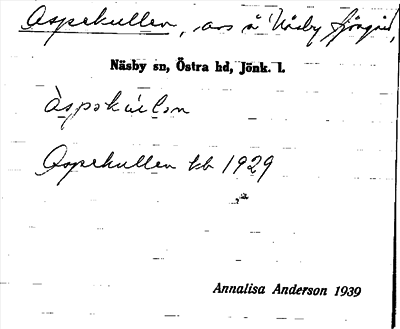 Aspekullen, avs å Näsby
Näsby sn, Östra hd, Jönk. l.
àspəkúlən
Aspekullen kb 1929
Annalisa Anderson 1939